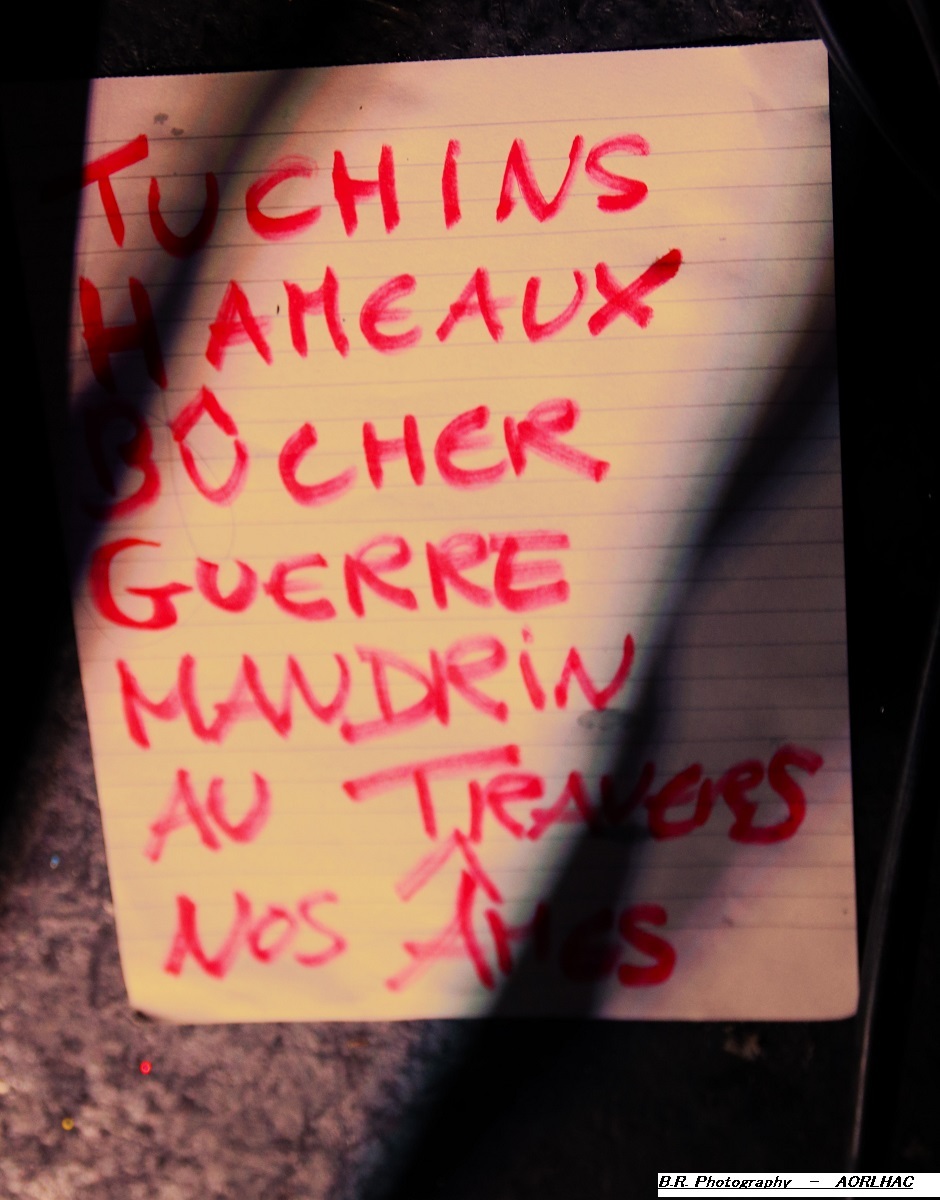 TUCHINS
HAMEAUX
BÛCHER
GUERRE
MANDRiN
AU TRAVERS
NOS ÂMES
B.R. Photography - AORLHAC